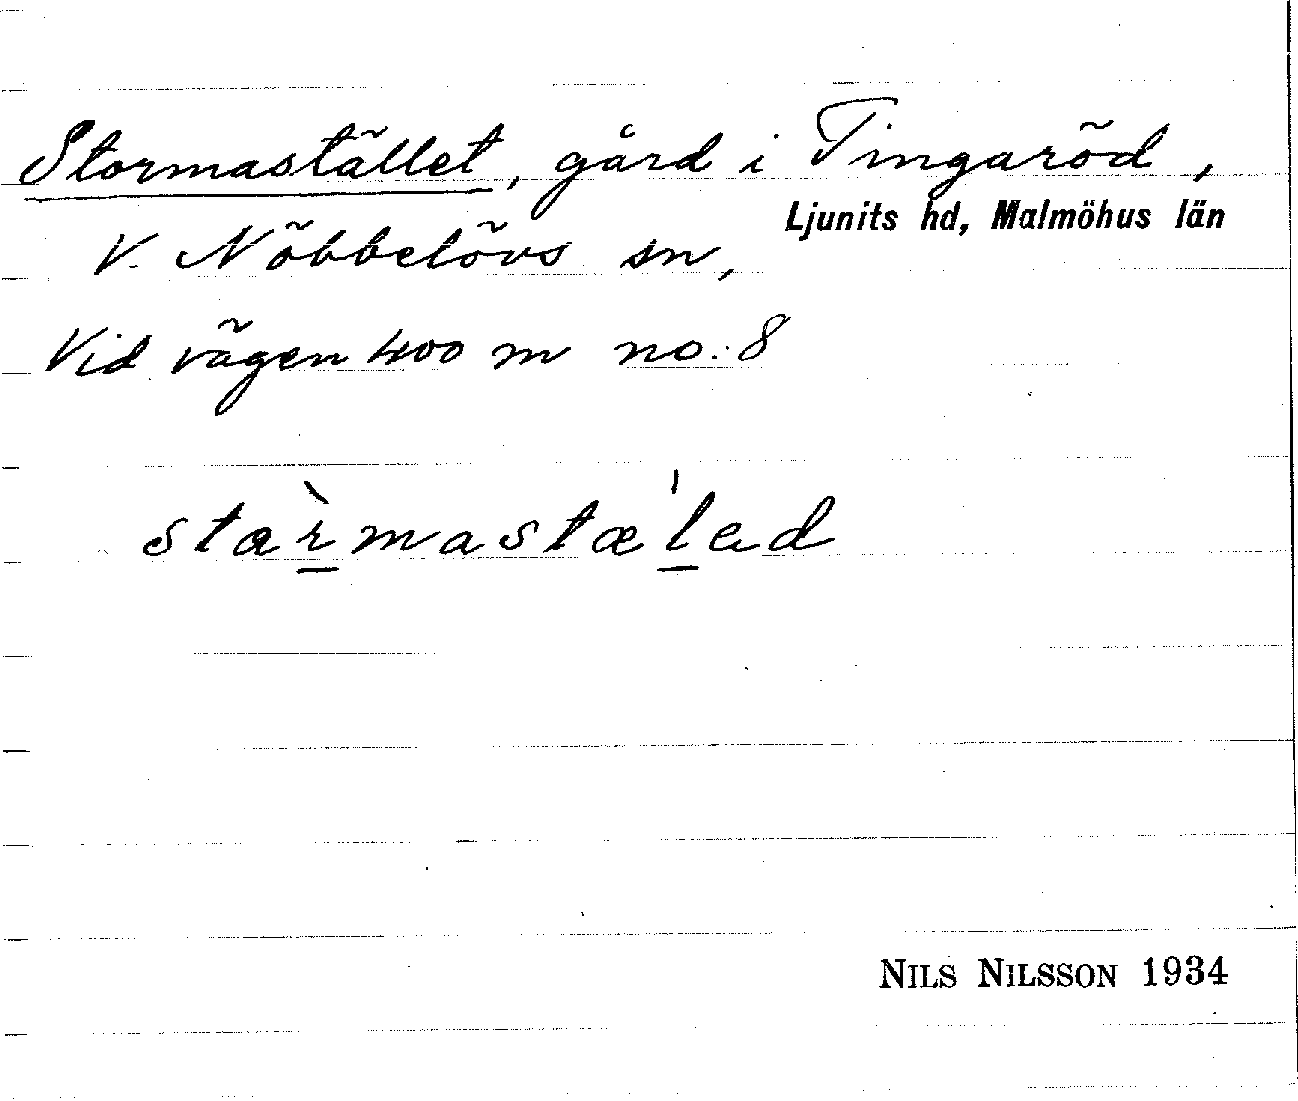 Stormastället, gård i Tingaröd,
Ljunits hd, Malmöhus län
V. Nöbbelövs sn,
Vid vägen 400 m no. 8
starmastæled
NILS NILSSON 1934